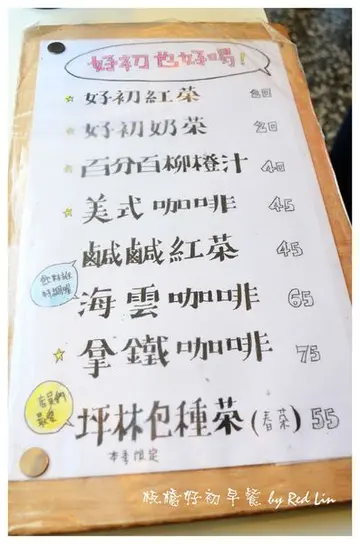 好初也好喝!
☆ 好初紅茶 20
☆ 好初奶茶 20
☆ 百分百柳橙汁 40
☆ 美式咖啡 45
鹹鹹紅茶 45
海雲咖啡 65
☆ 拿鐵咖啡 75
店員們最愛
坪林包種茶(春茶) 55
本季限定
板橋好初早餐 by Red Lin